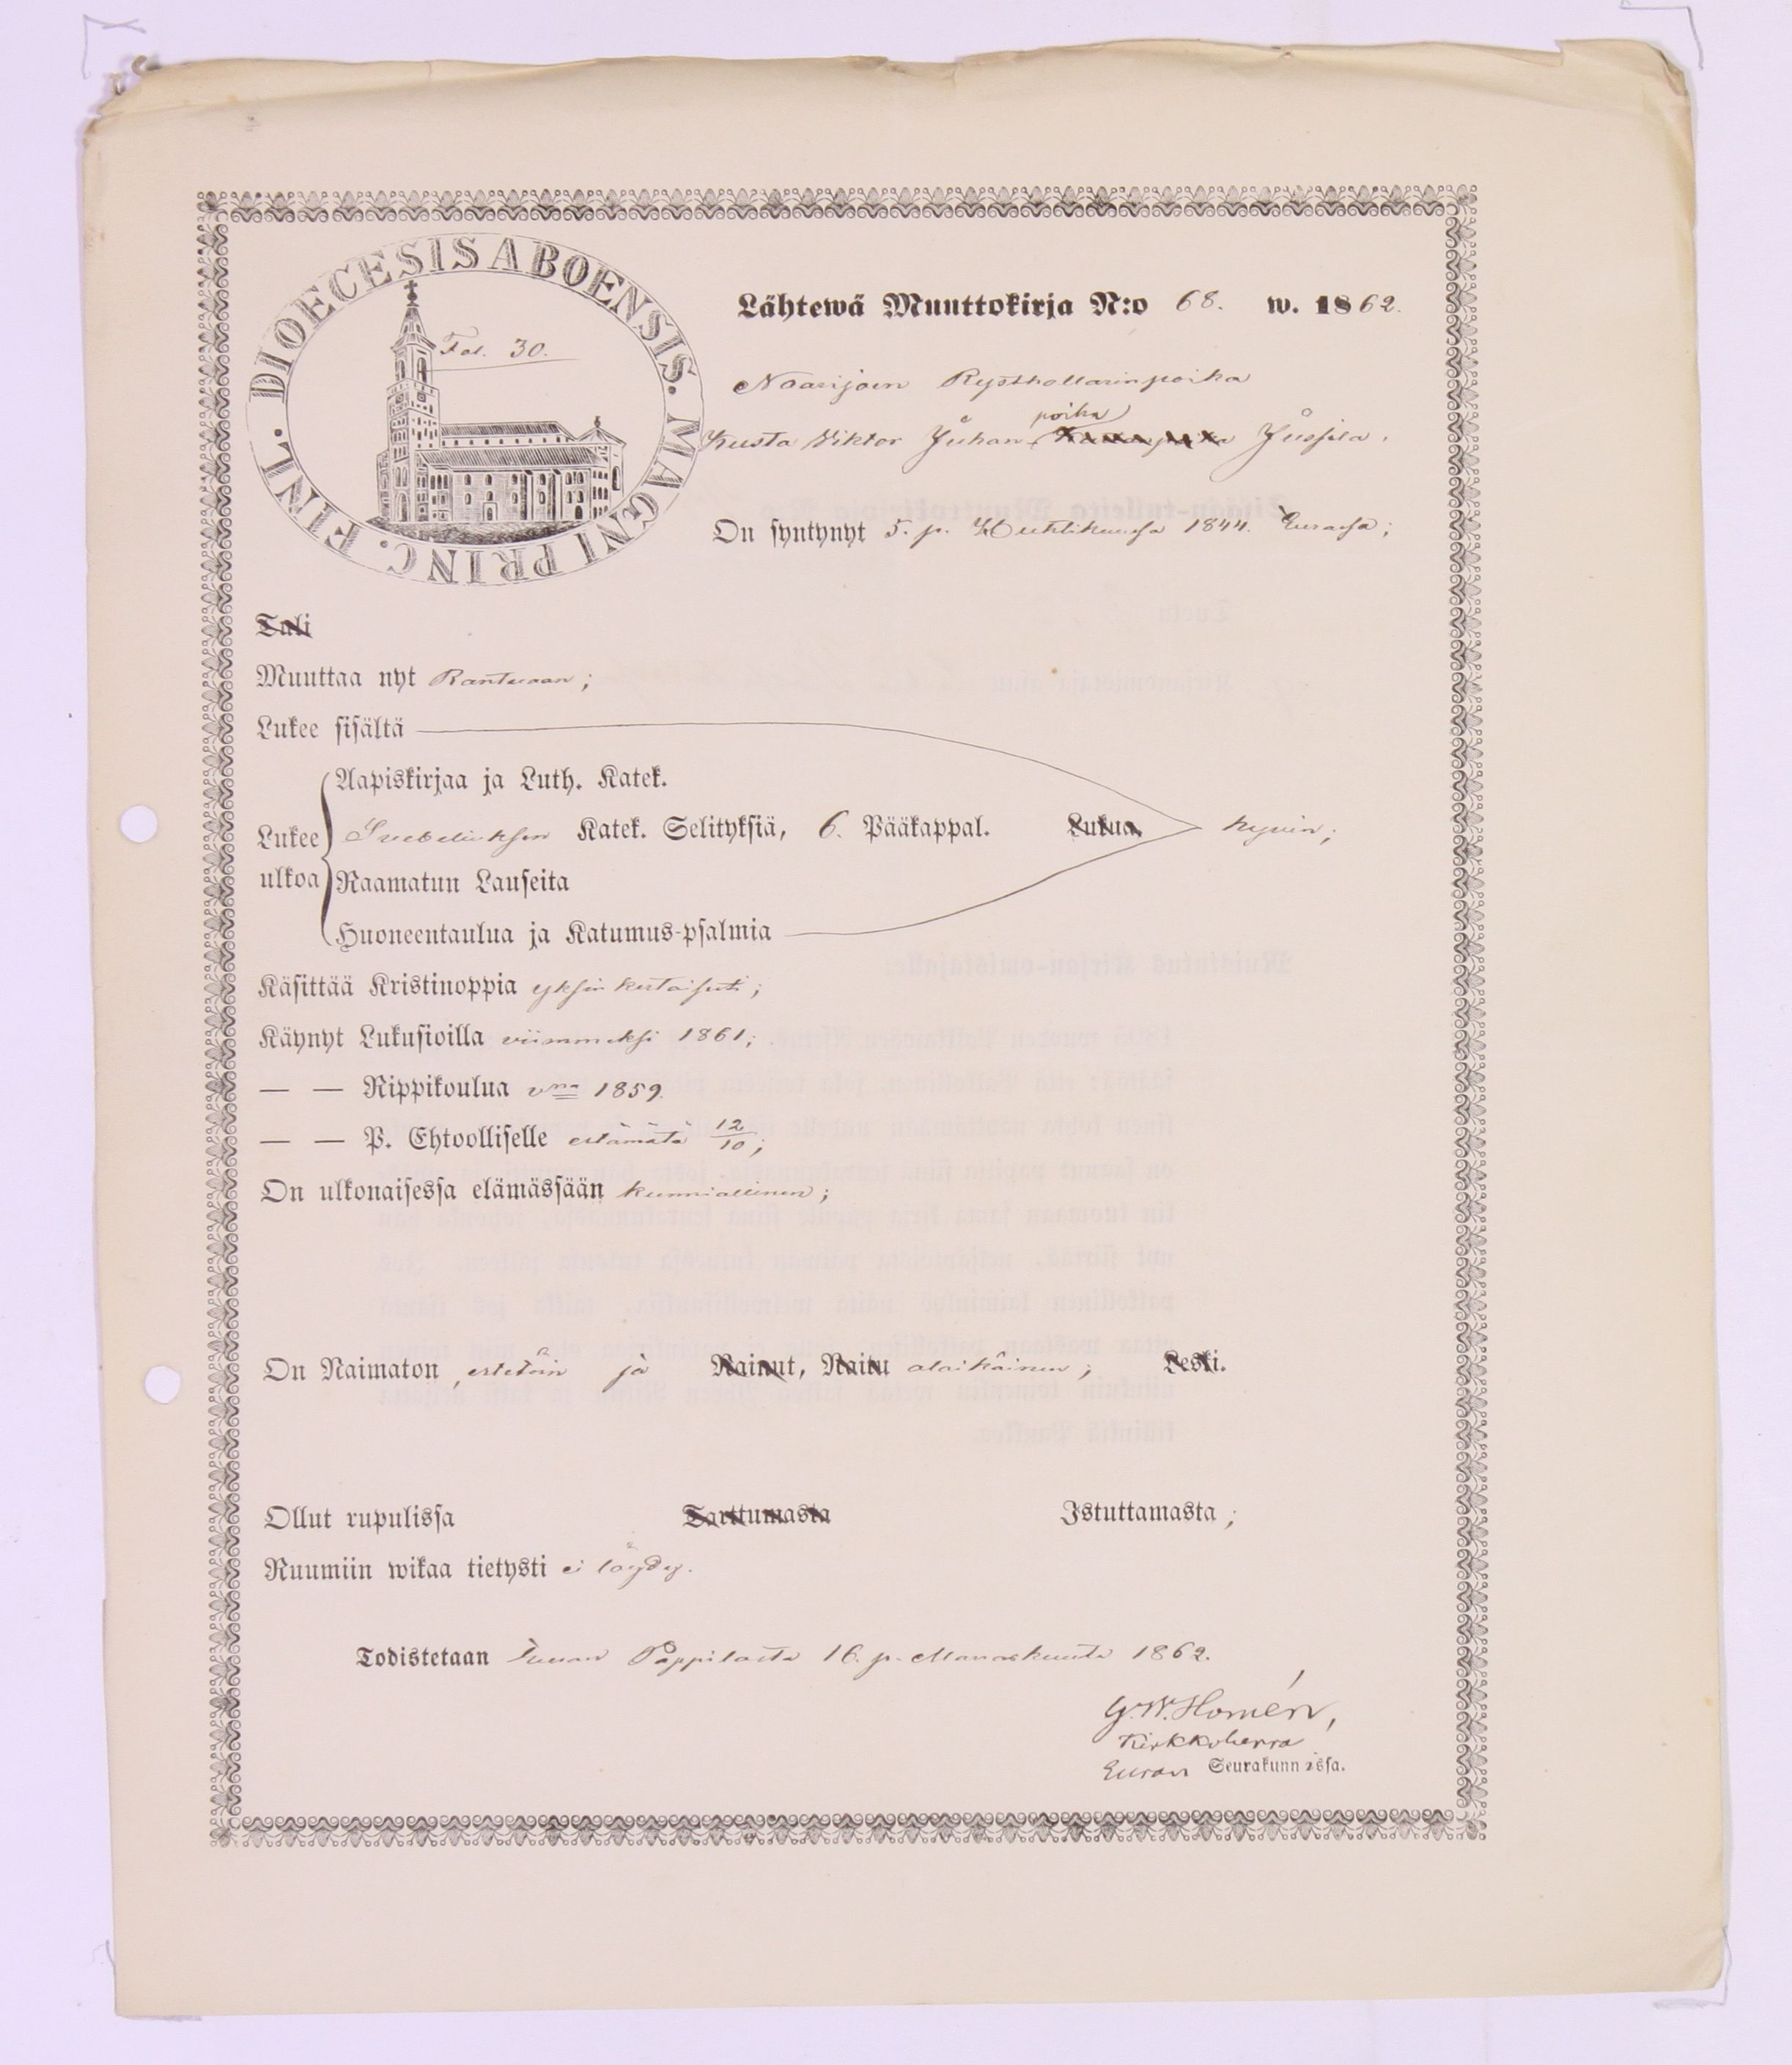 DIOECESIS ABOENSIS. MAGNI PRINC. FINL.
Fol. 30.
Lähtewä Muuttokirja N:o 68. w. 1862.
Naarjoen Rysthollarinpoika
poika
Kusta Viktor Juhan Jussila.
On syntynyt 5. p. Huhtikuussa 1844. Eurassa;
Tuli
Muuttaa nyt
Lukee sisältä
Aapiskirjaa ja Luth. Katek.
Lukee ulkoa Svebeliuksen Katek. Selityksiä, 6. Pääkappal. Lukua hyvin;
Raamatun Lauseita
Huoneentaulua ja Katumus-psalmia
Käsittää Kristinoppia yksinkertaisesti;
Käynyt Lukusioilla viimmeksi 1861;
— — Rippikoulua vna 1859.
— — P. Ehtoolliselle estämätä 12/10;
On ulkonaisessa elämässään kunniallinen;
On Naimaton, estetöin ja Nainut, Naitu alaikäinen; Leski.
Ollut rupulissa Tarttumasta Istuttamasta;
Ruumiin wikaa tietysti ei löydy.
Todistetaan Euran Pappilasta 16. p. Marraskuuta 1862.
G. W. Homén,
Kirkkoherra
Euran Seurakunnissa.